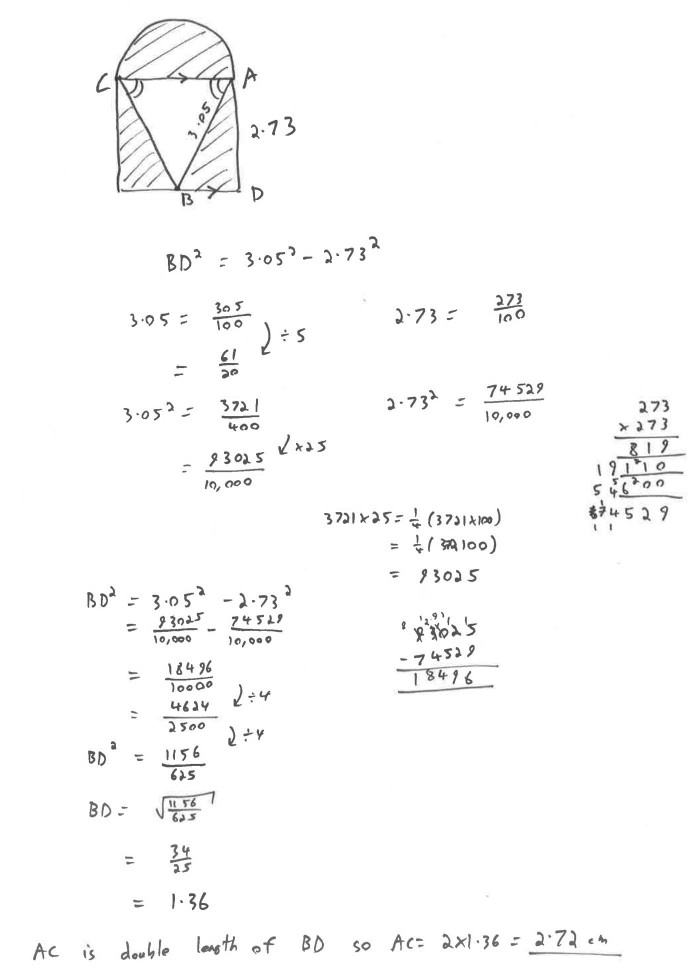 C A
3.05
2.73
B D
BD² = 3.05² - 2.73²
3.05 = 305/100
÷5
= 61/20
2.73 = 273/100
3.05² = 3721/400
×25
= 93025/10,000
2.73² = 74529/10,000
273
×273
819
19110
54600
74529
3721×25 = 1/4 (3721×100)
= 1/4 (372100)
= 93025
BD² = 3.05² - 2.73²
= 93025/10,000 - 74529/10,000
= 18496/10000
÷4
= 4624/2500
÷4
BD² = 1156/625
93025
-74529
18496
BD = √1156/625
= 34/25
= 1.36
AC is double length of BD so AC = 2×1.36 = 2.72 cm